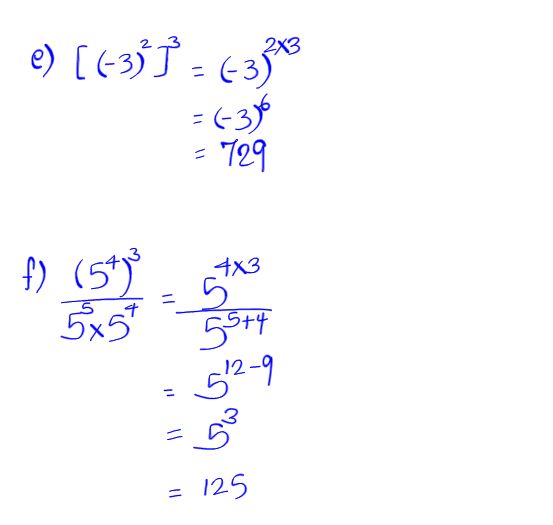 e) [(-3)²]³ = (-3)²ˣ³
= (-3)⁶
= 729
f) (5⁴)³ / 5⁵×5⁴ = 5⁴ˣ³ / 5⁵⁺⁴
= 5¹²⁻⁹
= 5³
= 125